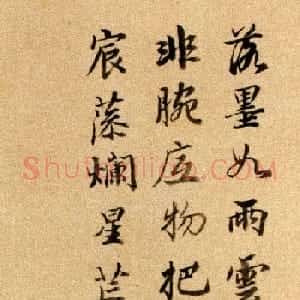 落墨如雨雲
非腕應物把
宸藻爛星芒